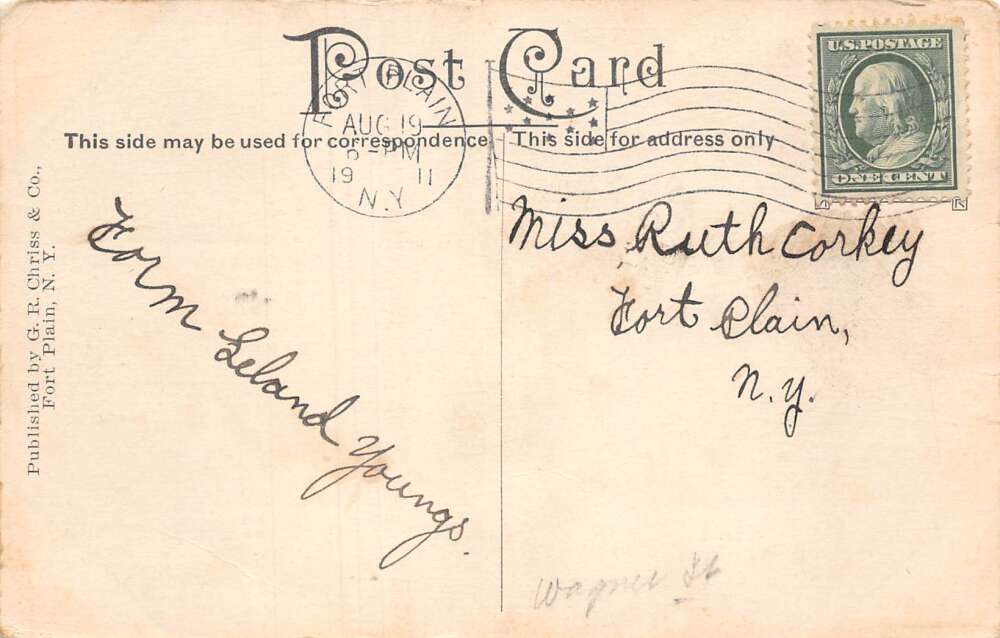 Post Card
This side may be used for correspondence
This side for address only
FORT PLAIN
AUG 19
-PM
19 11
N.Y
U.S. POSTAGE
ONE CENT
Published by G. R. Chriss & Co.,
Fort Plain, N. Y.
Form Leland Youngs.
Miss Ruth Corkey
Fort Plain,
N. y.
Wagner St